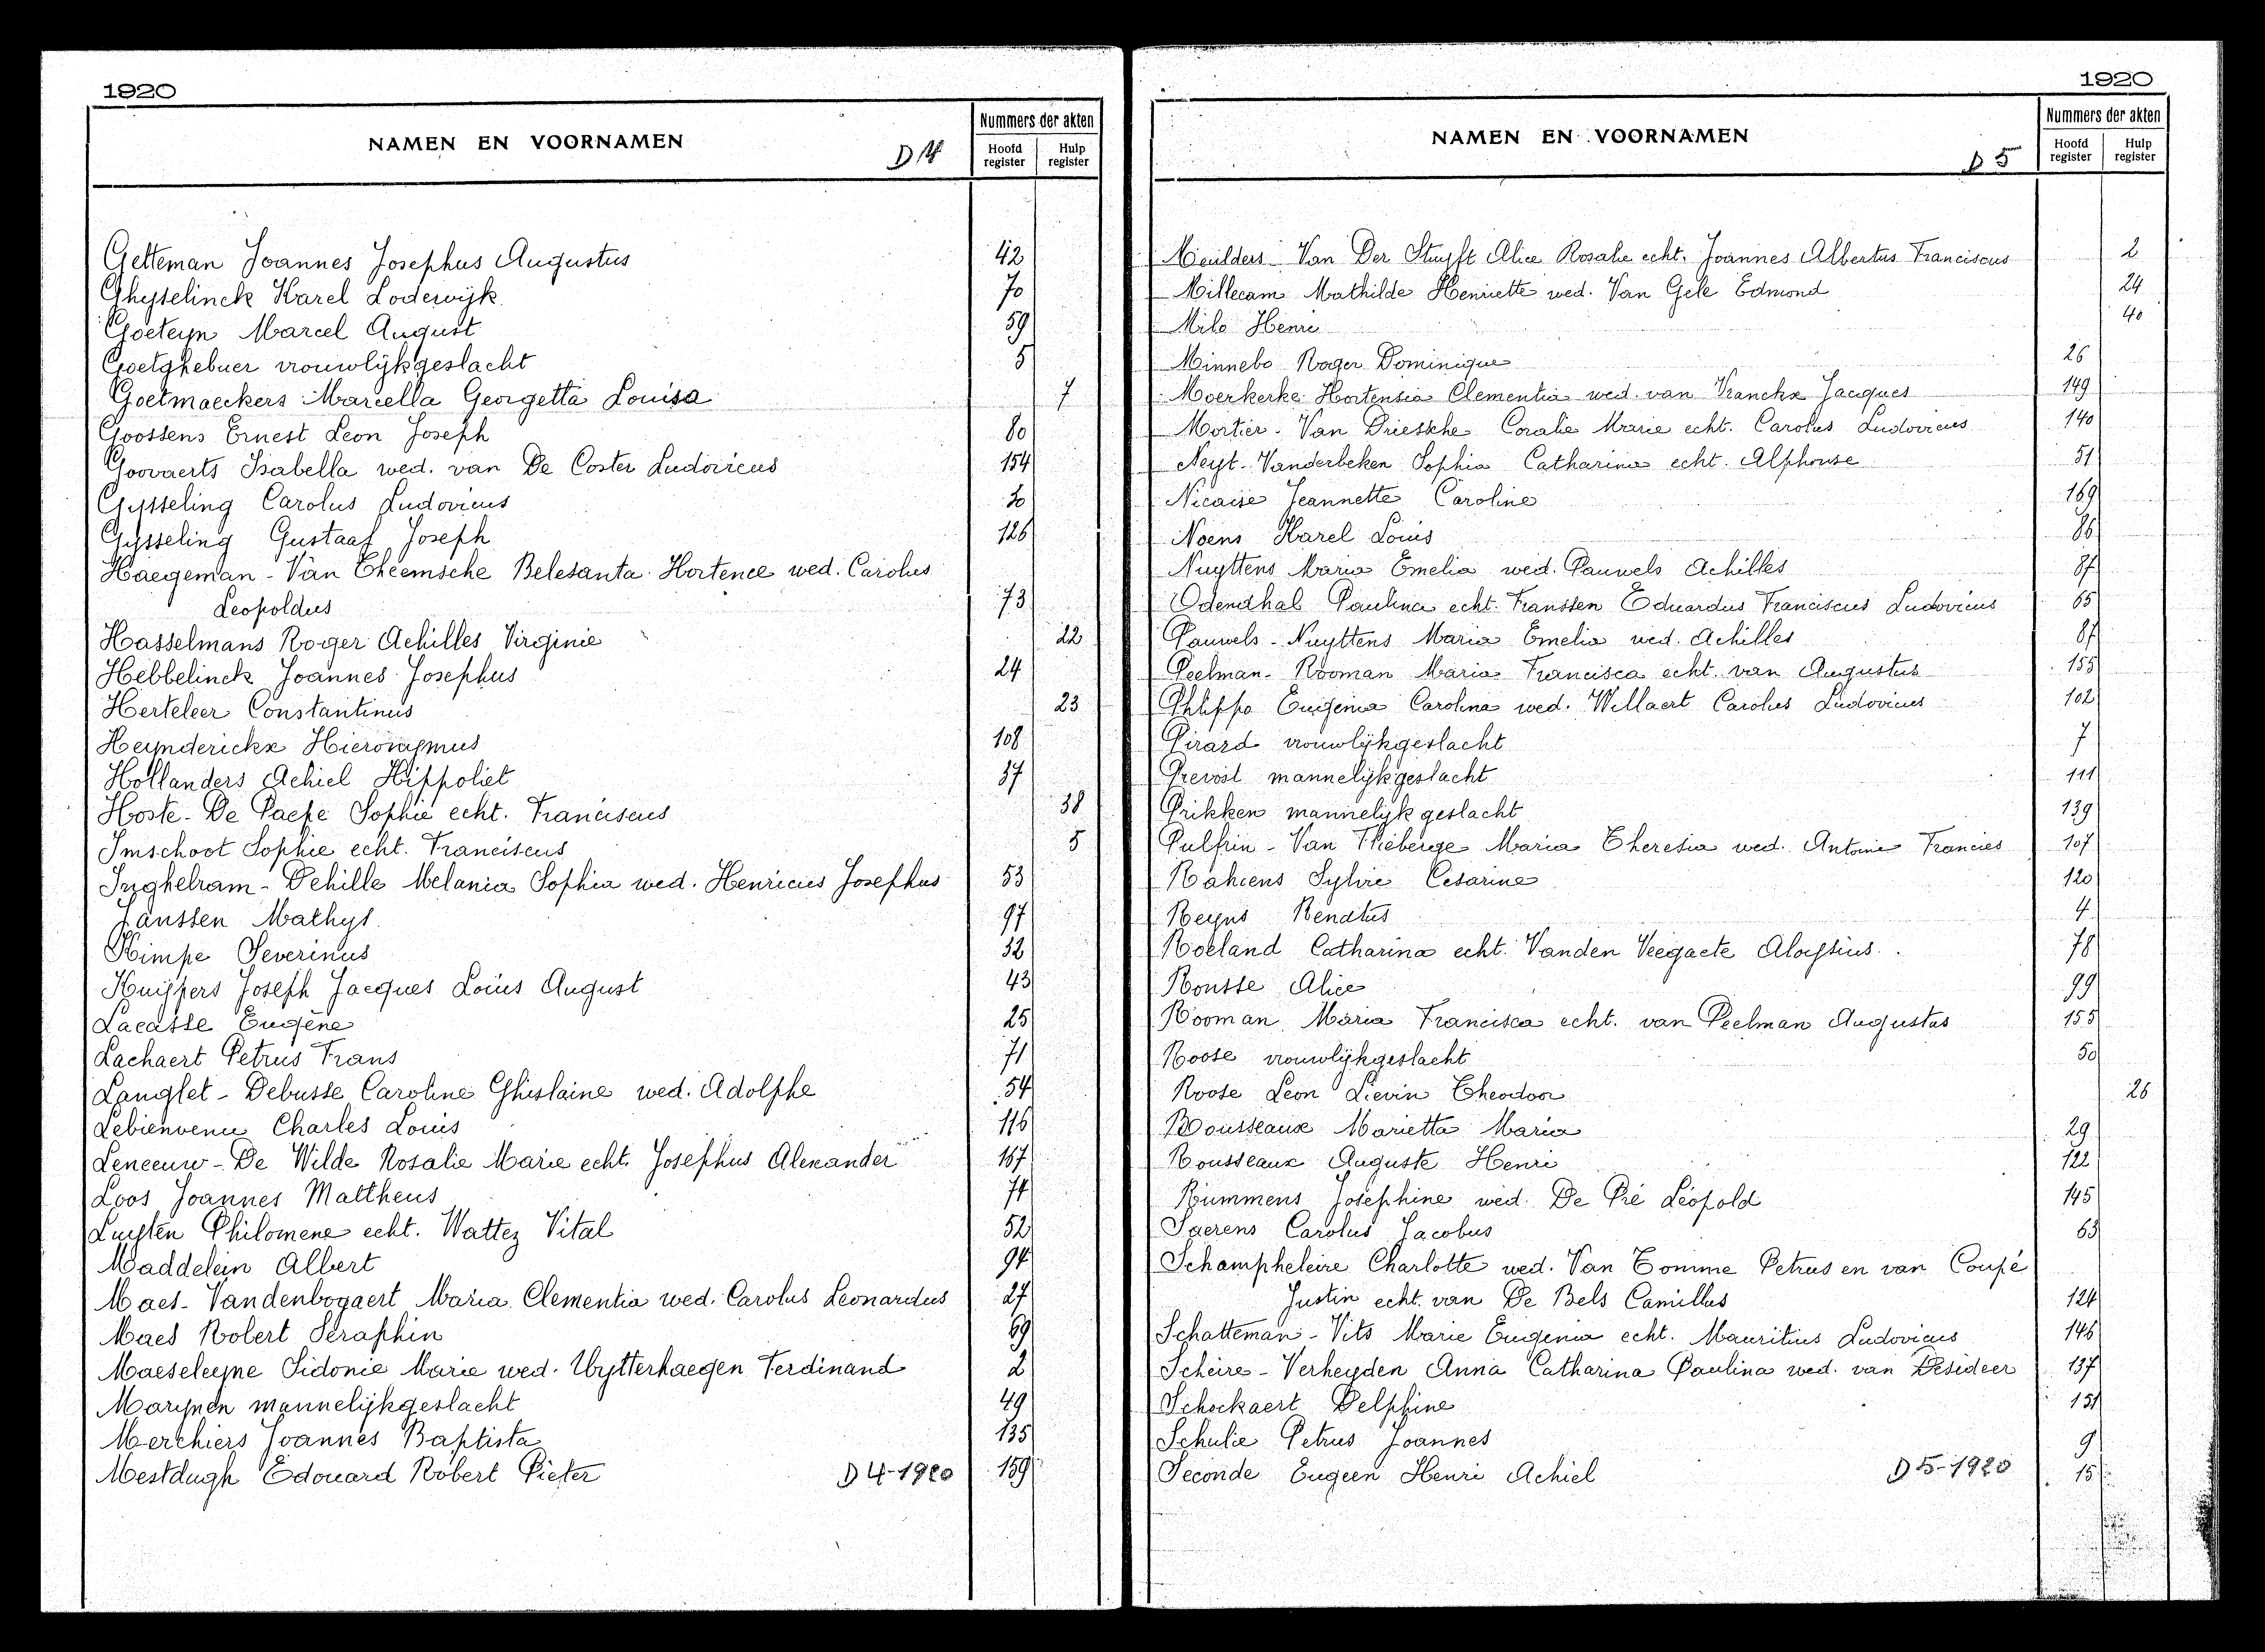 1920
NAMEN EN VOORNAMEN
D 4
Nummers der akten
Hoofd register
Hulp register
Getteman Joannes Josephus Augustus 42
Ghyselinck Karel Lodewijk 70
Goeteyn Marcel August 59
Goetghebuer vrouwlijkgeslacht 5
Goetmaeckers Marcella Georgetta Louisa 7
Goossens Ernest Leon Joseph 80
Goovaerts Isabella wed. van De Coster Ludovicus 154
Gysseling Carolus Ludovicus 30
Gysseling Gustaaf Joseph 126
Haegeman - Van Theemsche Belesanta Hortence wed. Carolus
Leopoldus 73
Hasselmans Roger Achilles Virginie 22
Hebbelinck Joannes Josephus 24
Herteleer Constantinus 23
Heynderickx Hieronymus 108
Hollanders Achiel Hippoliet 37
Hoste - De Paepe Sophie echt. Franciscus 38
Imschoot Sophie echt. Franciscus 5
Inghelram - Dehille Melania Sophia wed. Henricus Josephus 53
Janssen Mathys 97
Kimpe Severinus 32
Kuijpers Joseph Jacques Louis August 43
Lacasse Eugène 25
Lachaert Petrus Frans 71
Langlet - Debusse Caroline Ghislaine wed. Adolphe 54
Lebienvenu Charles Louis 116
Leneeuw - De Wilde Rosalie Marie echt. Josephus Alexander 167
Loos Joannes Mattheus 74
Luyten Philomene echt. Wattez Vital 52
Maddelein Albert 94
Maes - Vandenbogaert Maria Clementia wed. Carolus Leonardus 27
Maes Robert Seraphin 69
Maeseleyne Sidonie Marie wed. Uytterhaegen Ferdinand 2
Marynen mannelijkgeslacht 49
Merchiers Joannes Baptista 135
Mestdagh Edouard Robert Pieter D 4-1920 159
1920
NAMEN EN VOORNAMEN
D 5
Nummers der akten
Hoofd register
Hulp register
Meulders - Van Der Stuyft Alice Rosalie echt. Joannes Albertus Franciscus 2
Millecam Mathilde Henriette wed. Van Gele Edmond 24
Milo Henri 40
Minnebo Roger Dominique 26
Moerkerke Hortensia Clementia wed. van Vranckx Jacques 149
Mortier - Van Driessche Coralie Marie echt. Carolus Ludovicus 140
Neyt - Vanderbeken Sophia Catharina echt. Alphonse 51
Nicaise Jeannette Caroline 169
Noens Karel Louis 86
Nuyttens Maria Emelia wed. Pauwels Achilles 87
Odendhal Paulina echt. Franssen Eduardus Franciscus Ludovicus 65
Pauwels - Nuyttens Maria Emelia wed. Achilles 87
Peelman - Rooman Maria Francisca echt. van Augustus 155
Phlippo Eugenia Carolina wed. Willaert Carolus Ludovicus 102
Pirard vrouwlijkgeslacht 7
Prevost mannelijkgeslacht 111
Prikken mannelijk geslacht 139
Pulfrin - Van Thieberge Maria Theresia wed. Antoine Francies 107
Rahiens Sylvie Cesarine 120
Reyns Renatus 4
Roeland Catharina echt. Vanden Veegaete Aloysius 78
Rousse Alice 99
Rooman Maria Francisca echt. van Peelman Augustus 155
Roose vrouwlijkgeslacht 50
Roose Leon Lievin Theodoor 26
Rousseaux Marietta Maria 29
Rousseaux Auguste Henri 122
Rummens Josephine wed. De Pré Léopold 145
Saerens Carolus Jacobus 63
Schampheleire Charlotte wed. Van Tomme Petrus en van Coupé
Justin echt. van De Bels Camillus 124
Schatteman - Vits Marie Eugenia echt. Mauritius Ludovicus 146
Scheire - Verheyden Anna Catharina Paulina wed. van Desideer 137
Schockaert Delphine 151
Schulie Petrus Joannes 9
Seconde Eugeen Henri Achiel D 5-1920 15